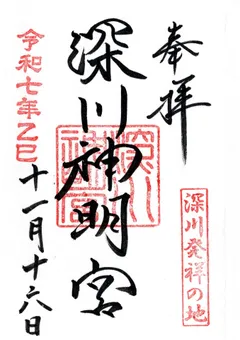 奉拝
深川発祥の地
深川神明宮
令和七年乙巳
十一月十六日